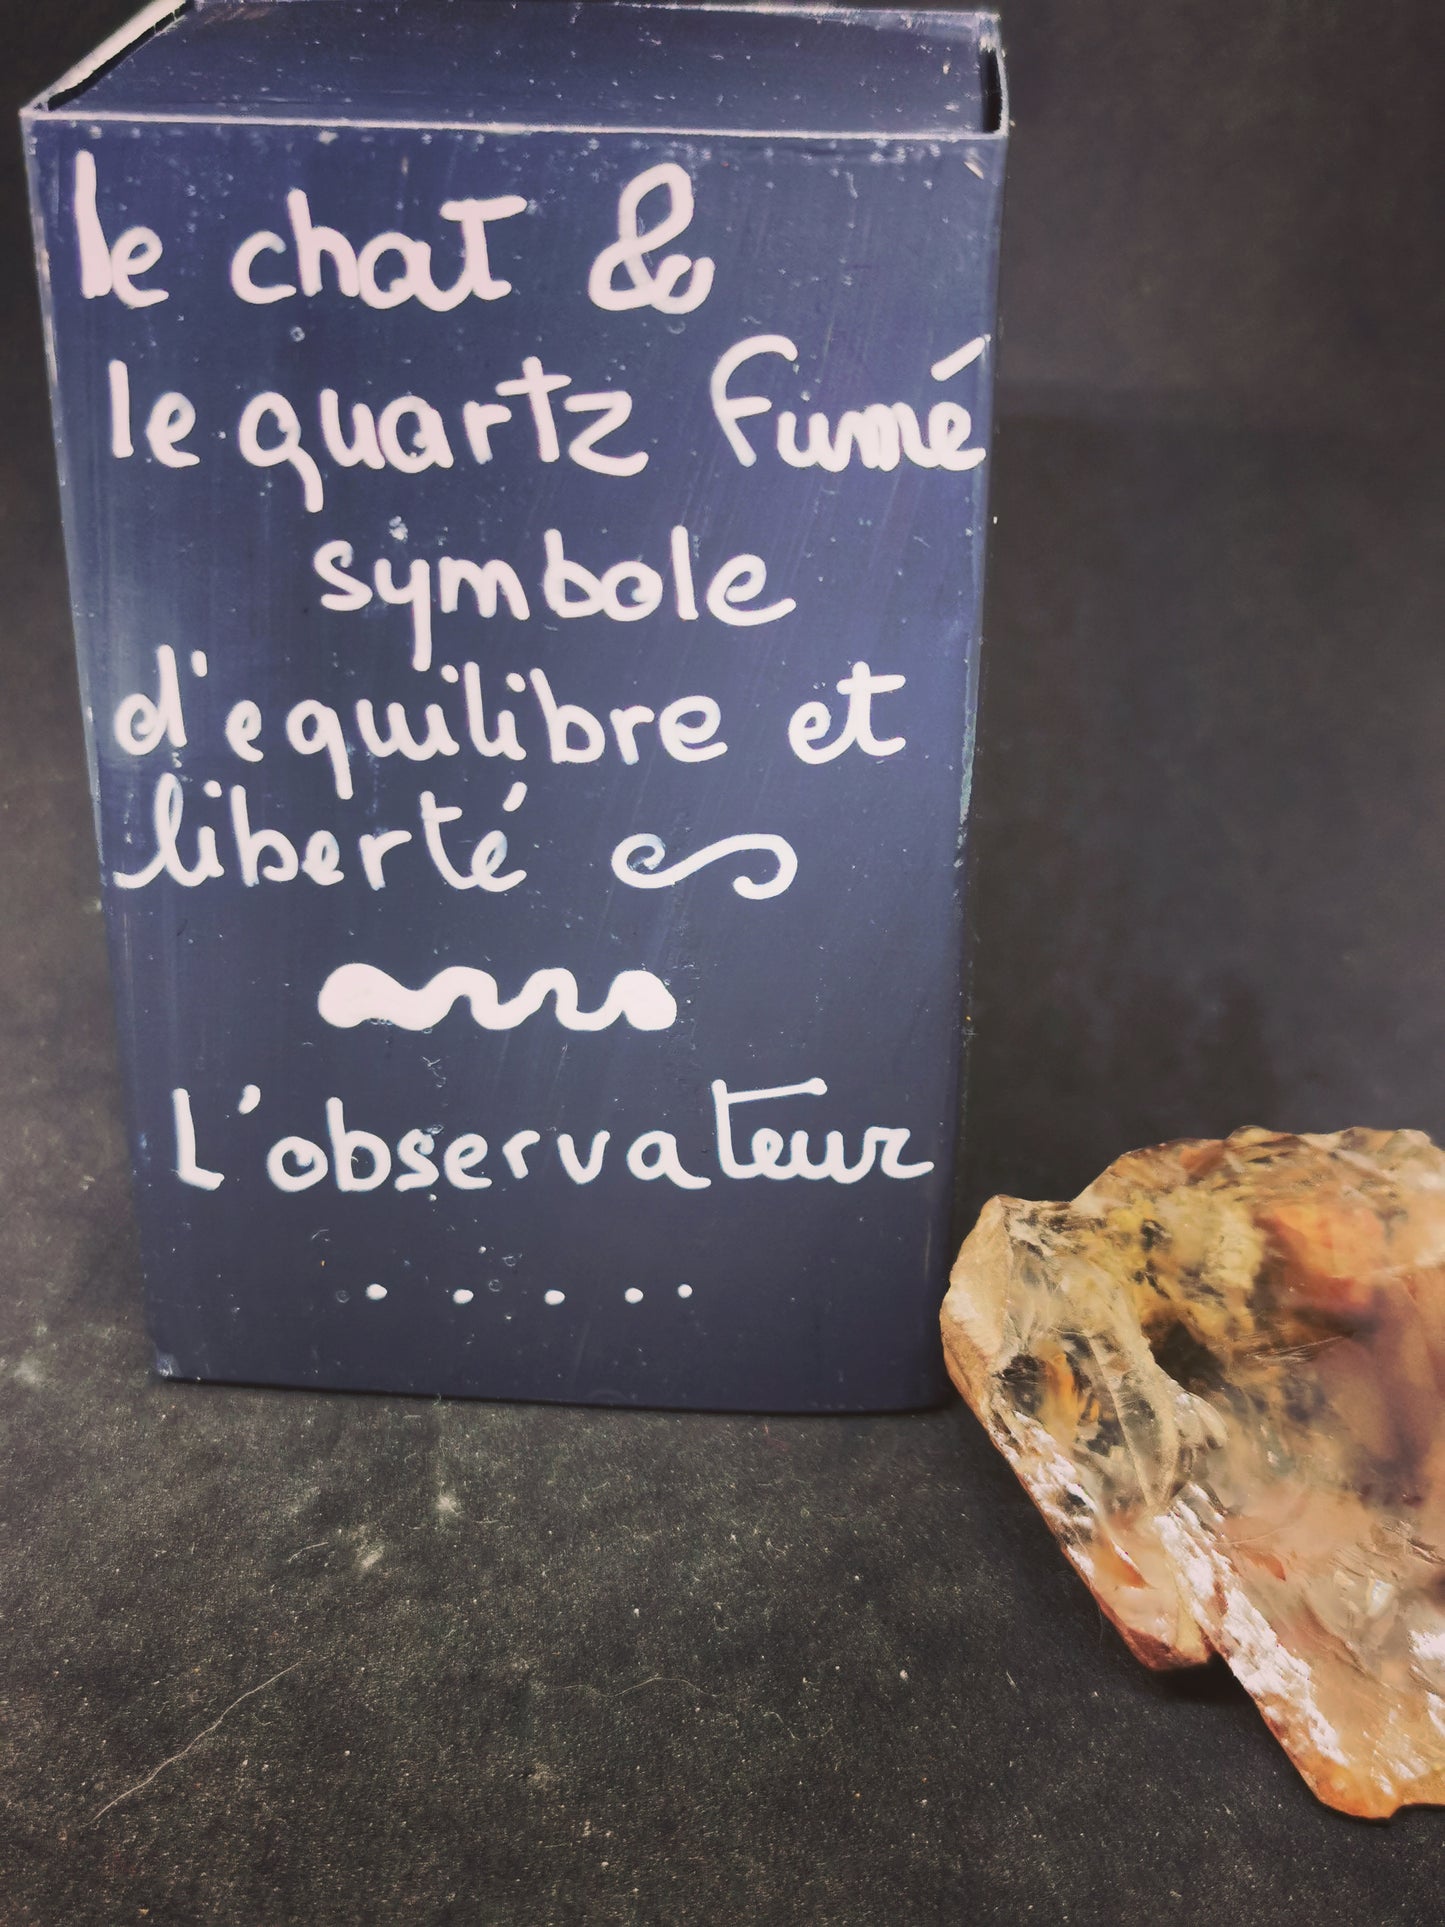 le chat &
le quartz fumé
symbole
d'equilibre et
liberté
L'observateur
.....